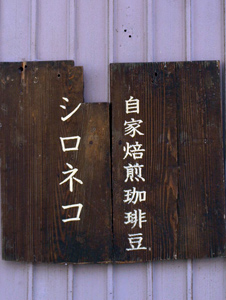 自家焙煎珈琲豆
シロネコ